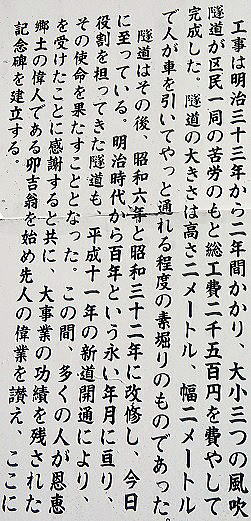 工事は明治三十三年から二年間かかり、大小三つの風吹
隧道が区民一同の苦労のもと総工費二千五百円を費やして
完成した。隧道の大きさは高さ二メートル、幅二メートル
で人が車を引いてやっと通れる程度の素堀りのものであった。
隧道はその後、昭和六年と昭和三十二年に改修し、今日
に至っている。明治時代から百年という永い年月に亘り、
役割を担ってきた隧道も、平成十一年の新道開通により、
その使命を果たすこととなった。この間、多くの人が恩恵
を受けたことに感謝すると共に、大事業の功績を残された
郷土の偉人である卯吉翁を始め先人の偉業を讃え、ここに
記念碑を建立する。